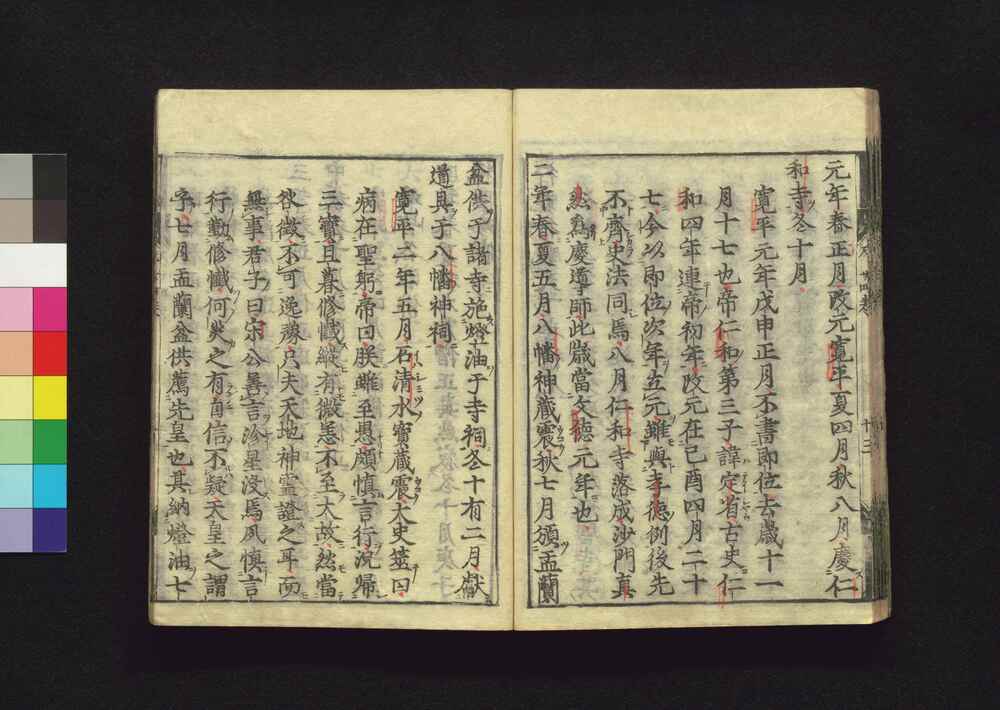 元年春正月改元寛平夏四月秋八月慶仁
和寺冬十月
寛平元年戊申正月不書即位去歳十一
月十七也帝仁和第三子諱定省古史仁
和四年連帝初年改元在己酉四月二十
七今以即位次年立元雖與孝徳例後先
不齊史法同焉八月仁和寺落成沙門真
然爲慶導師此歳當文徳元年也
二年春夏五月八幡神藏震秋七月頒盂蘭
盆供于諸寺施燈油于寺祠冬十有二月獻
道具于八幡神祠
寛平二年五月石清水寳藏震大史筮曰
病在聖躬帝曰朕雖至愚頗慎言行況歸
三寳且暮修懴縱有微恙不至大故然當
後徴不可逸豫只夫天地神霊證之耳而
無事君子曰宋公善言沴星没焉夙慎言
行勤修懴何災之有自信不疑天皇之謂
乎七月盂蘭盆供薦先皇也其納燈油七